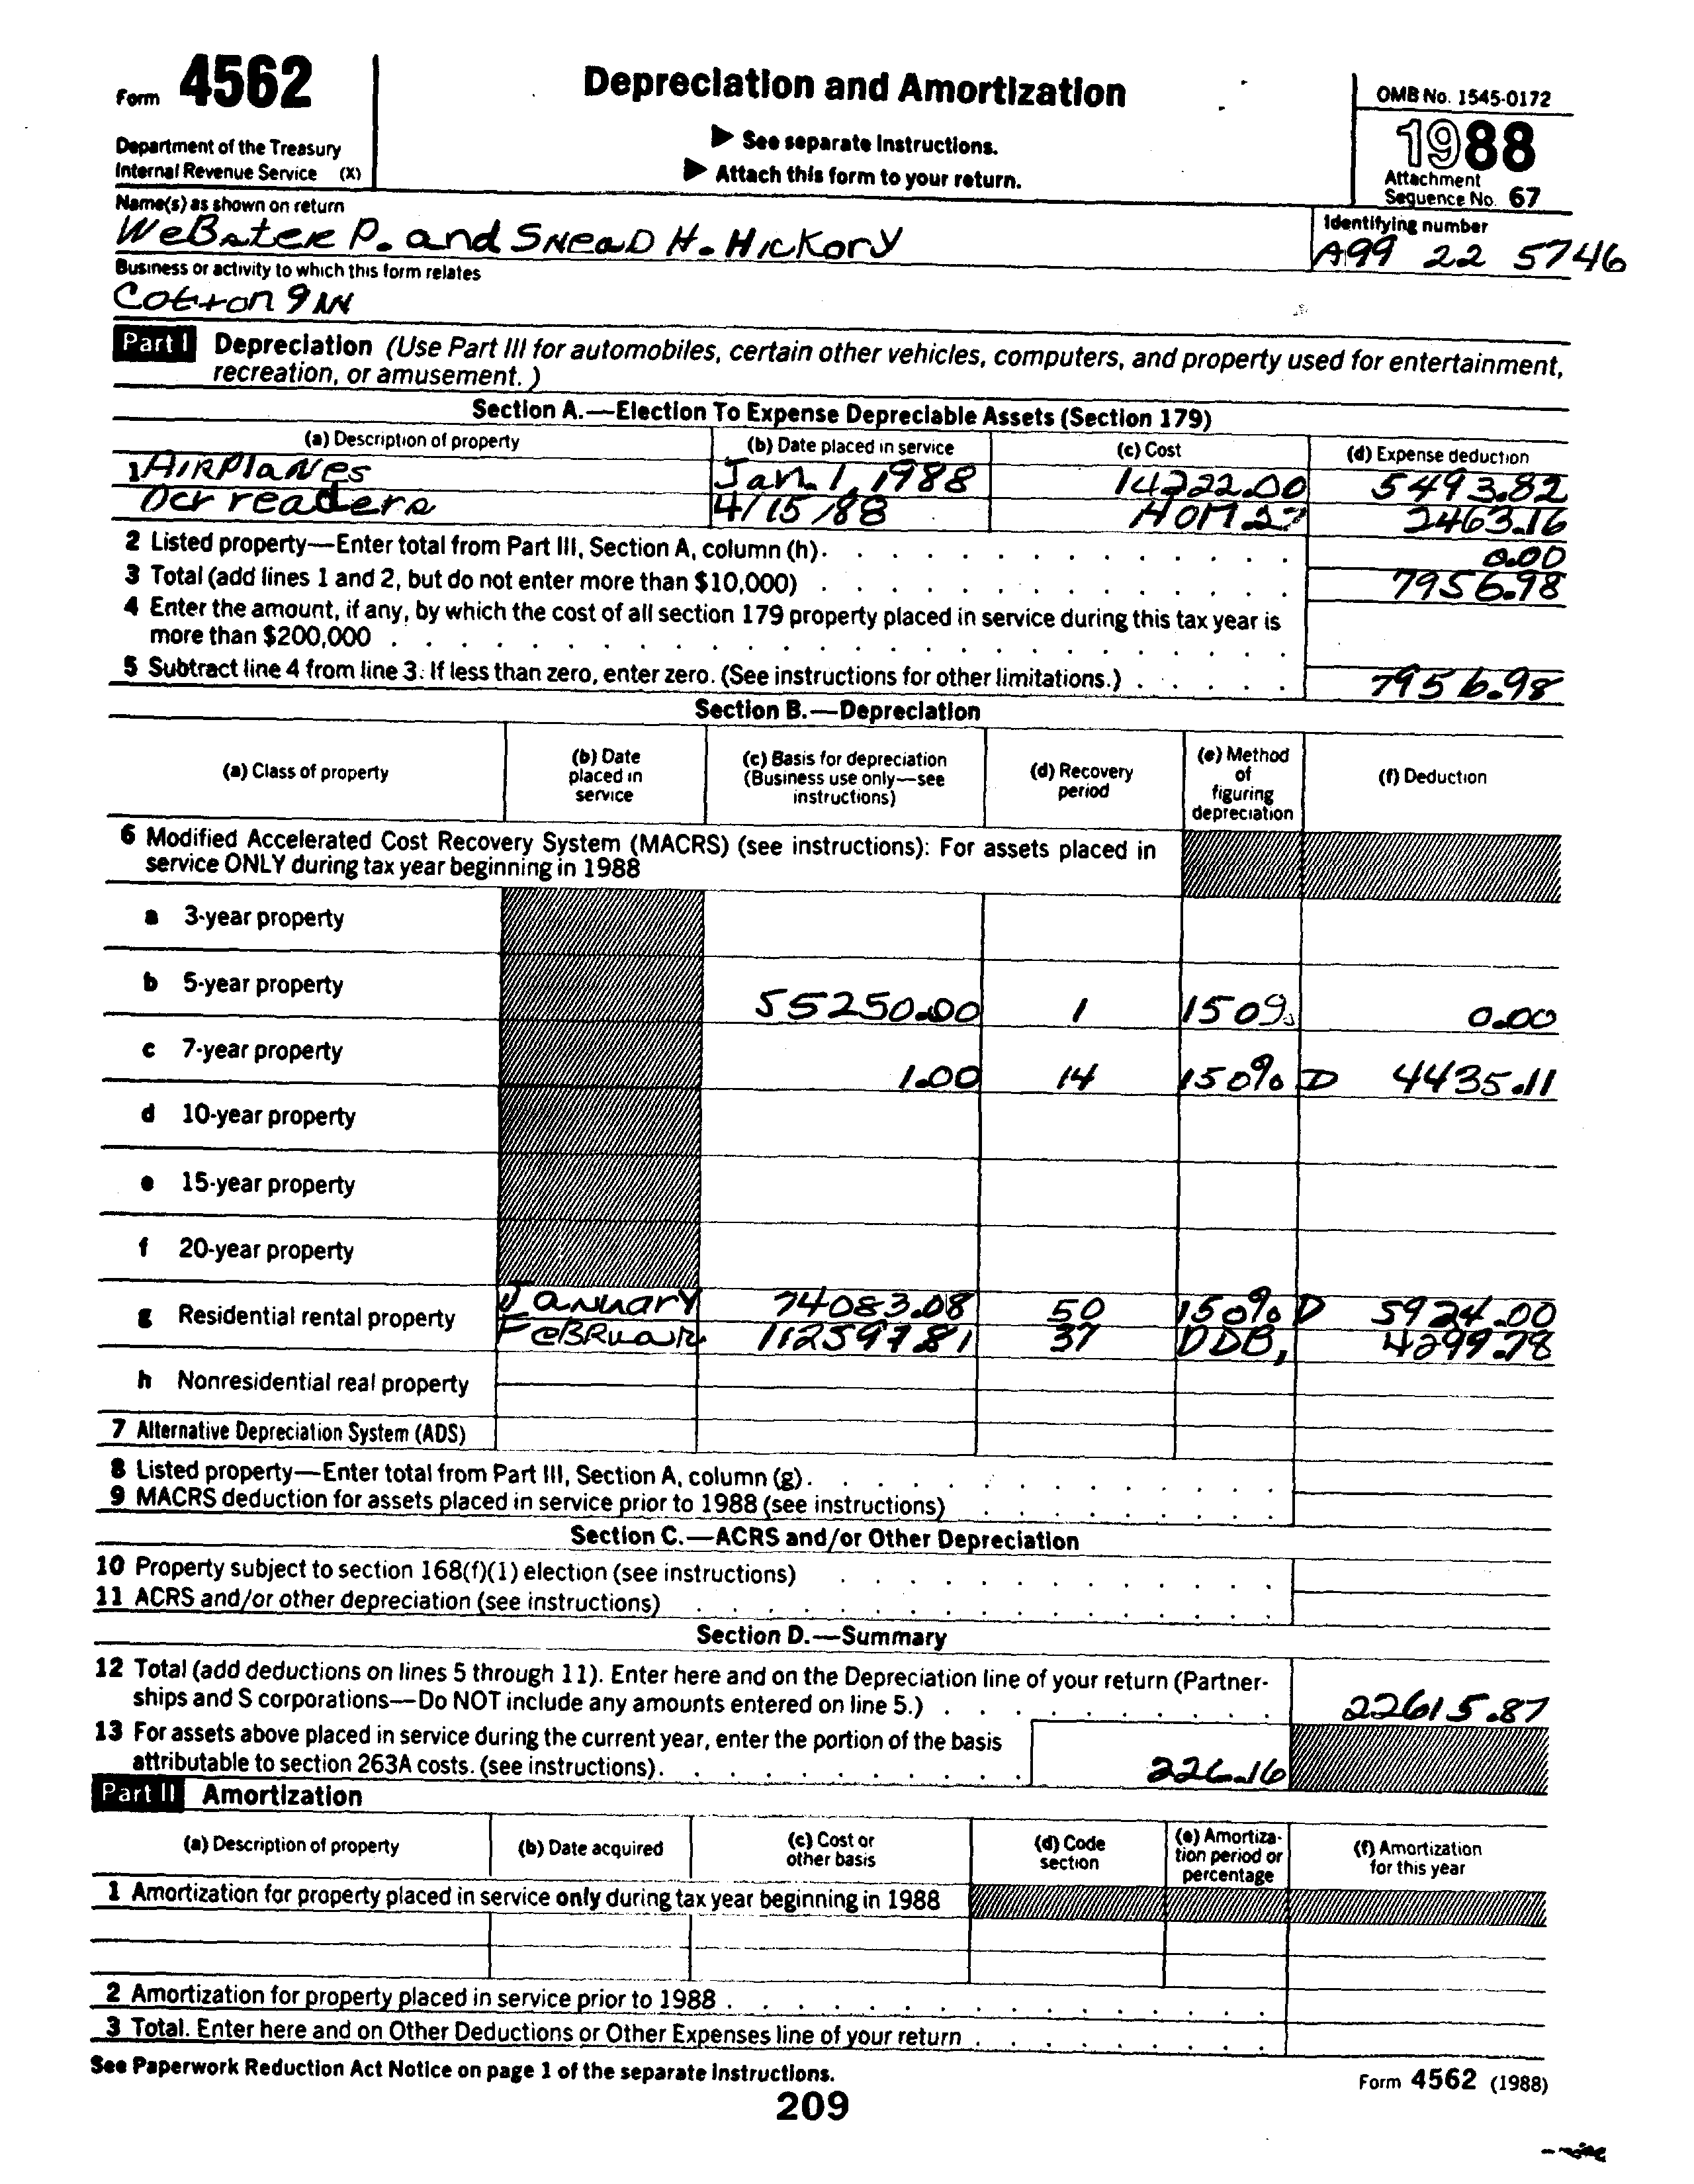 Form 4562
Depreciation and Amortization
OMB No. 1545-0172
Department of the Treasury
Internal Revenue Service (X)
▶ See separate Instructions.
▶ Attach this form to your return.
1988
Attachment
Sequence No. 67
Name(s) as shown on return
Identifying number
WeBster P. and SNeaD H. Hickory
A99 22 5746
Business or activity to which this form relates
Cotton gin
Part I Depreciation (Use Part III for automobiles, certain other vehicles, computers, and property used for entertainment,
recreation, or amusement.)
Section A.—Election To Expense Depreciable Assets (Section 179)
(a) Description of property (b) Date placed in service (c) Cost (d) Expense deduction
1 AIRPlaNes Jan. 1, 1988 14222.00 5493.82
Ocr readers 4/15/88 2463.16
2 Listed property—Enter total from Part III, Section A, column (h). 0.00
3 Total (add lines 1 and 2, but do not enter more than $10,000) 7956.98
4 Enter the amount, if any, by which the cost of all section 179 property placed in service during this tax year is
more than $200,000
5 Subtract line 4 from line 3. If less than zero, enter zero. (See instructions for other limitations.) 7956.98
Section B.—Depreciation
(a) Class of property
(b) Date
placed in
service
(c) Basis for depreciation
(Business use only—see
instructions)
(d) Recovery
period
(e) Method
of
figuring
depreciation
(f) Deduction
6 Modified Accelerated Cost Recovery System (MACRS) (see instructions): For assets placed in
service ONLY during tax year beginning in 1988
a 3-year property
b 5-year property 55250.00 1 150% 0.00
c 7-year property 1.00 14 150% D 4435.11
d 10-year property
e 15-year property
f 20-year property
g Residential rental property January 74083.08 50 150% D 5924.00
FeBRuar 112597.81 37 DDB, 4299.78
h Nonresidential real property
7 Alternative Depreciation System (ADS)
8 Listed property—Enter total from Part III, Section A, column (g).
9 MACRS deduction for assets placed in service prior to 1988 (see instructions)
Section C.—ACRS and/or Other Depreciation
10 Property subject to section 168(f)(1) election (see instructions)
11 ACRS and/or other depreciation (see instructions)
Section D.—Summary
12 Total (add deductions on lines 5 through 11). Enter here and on the Depreciation line of your return (Partner-
ships and S corporations—Do NOT include any amounts entered on line 5.) 22615.87
13 For assets above placed in service during the current year, enter the portion of the basis
attributable to section 263A costs. (see instructions). 226.16
Part II Amortization
(a) Description of property
(b) Date acquired
(c) Cost or
other basis
(d) Code
section
(e) Amortiza-
tion period or
percentage
(f) Amortization
for this year
1 Amortization for property placed in service only during tax year beginning in 1988
2 Amortization for property placed in service prior to 1988
3 Total. Enter here and on Other Deductions or Other Expenses line of your return
See Paperwork Reduction Act Notice on page 1 of the separate instructions.
Form 4562 (1988)
209